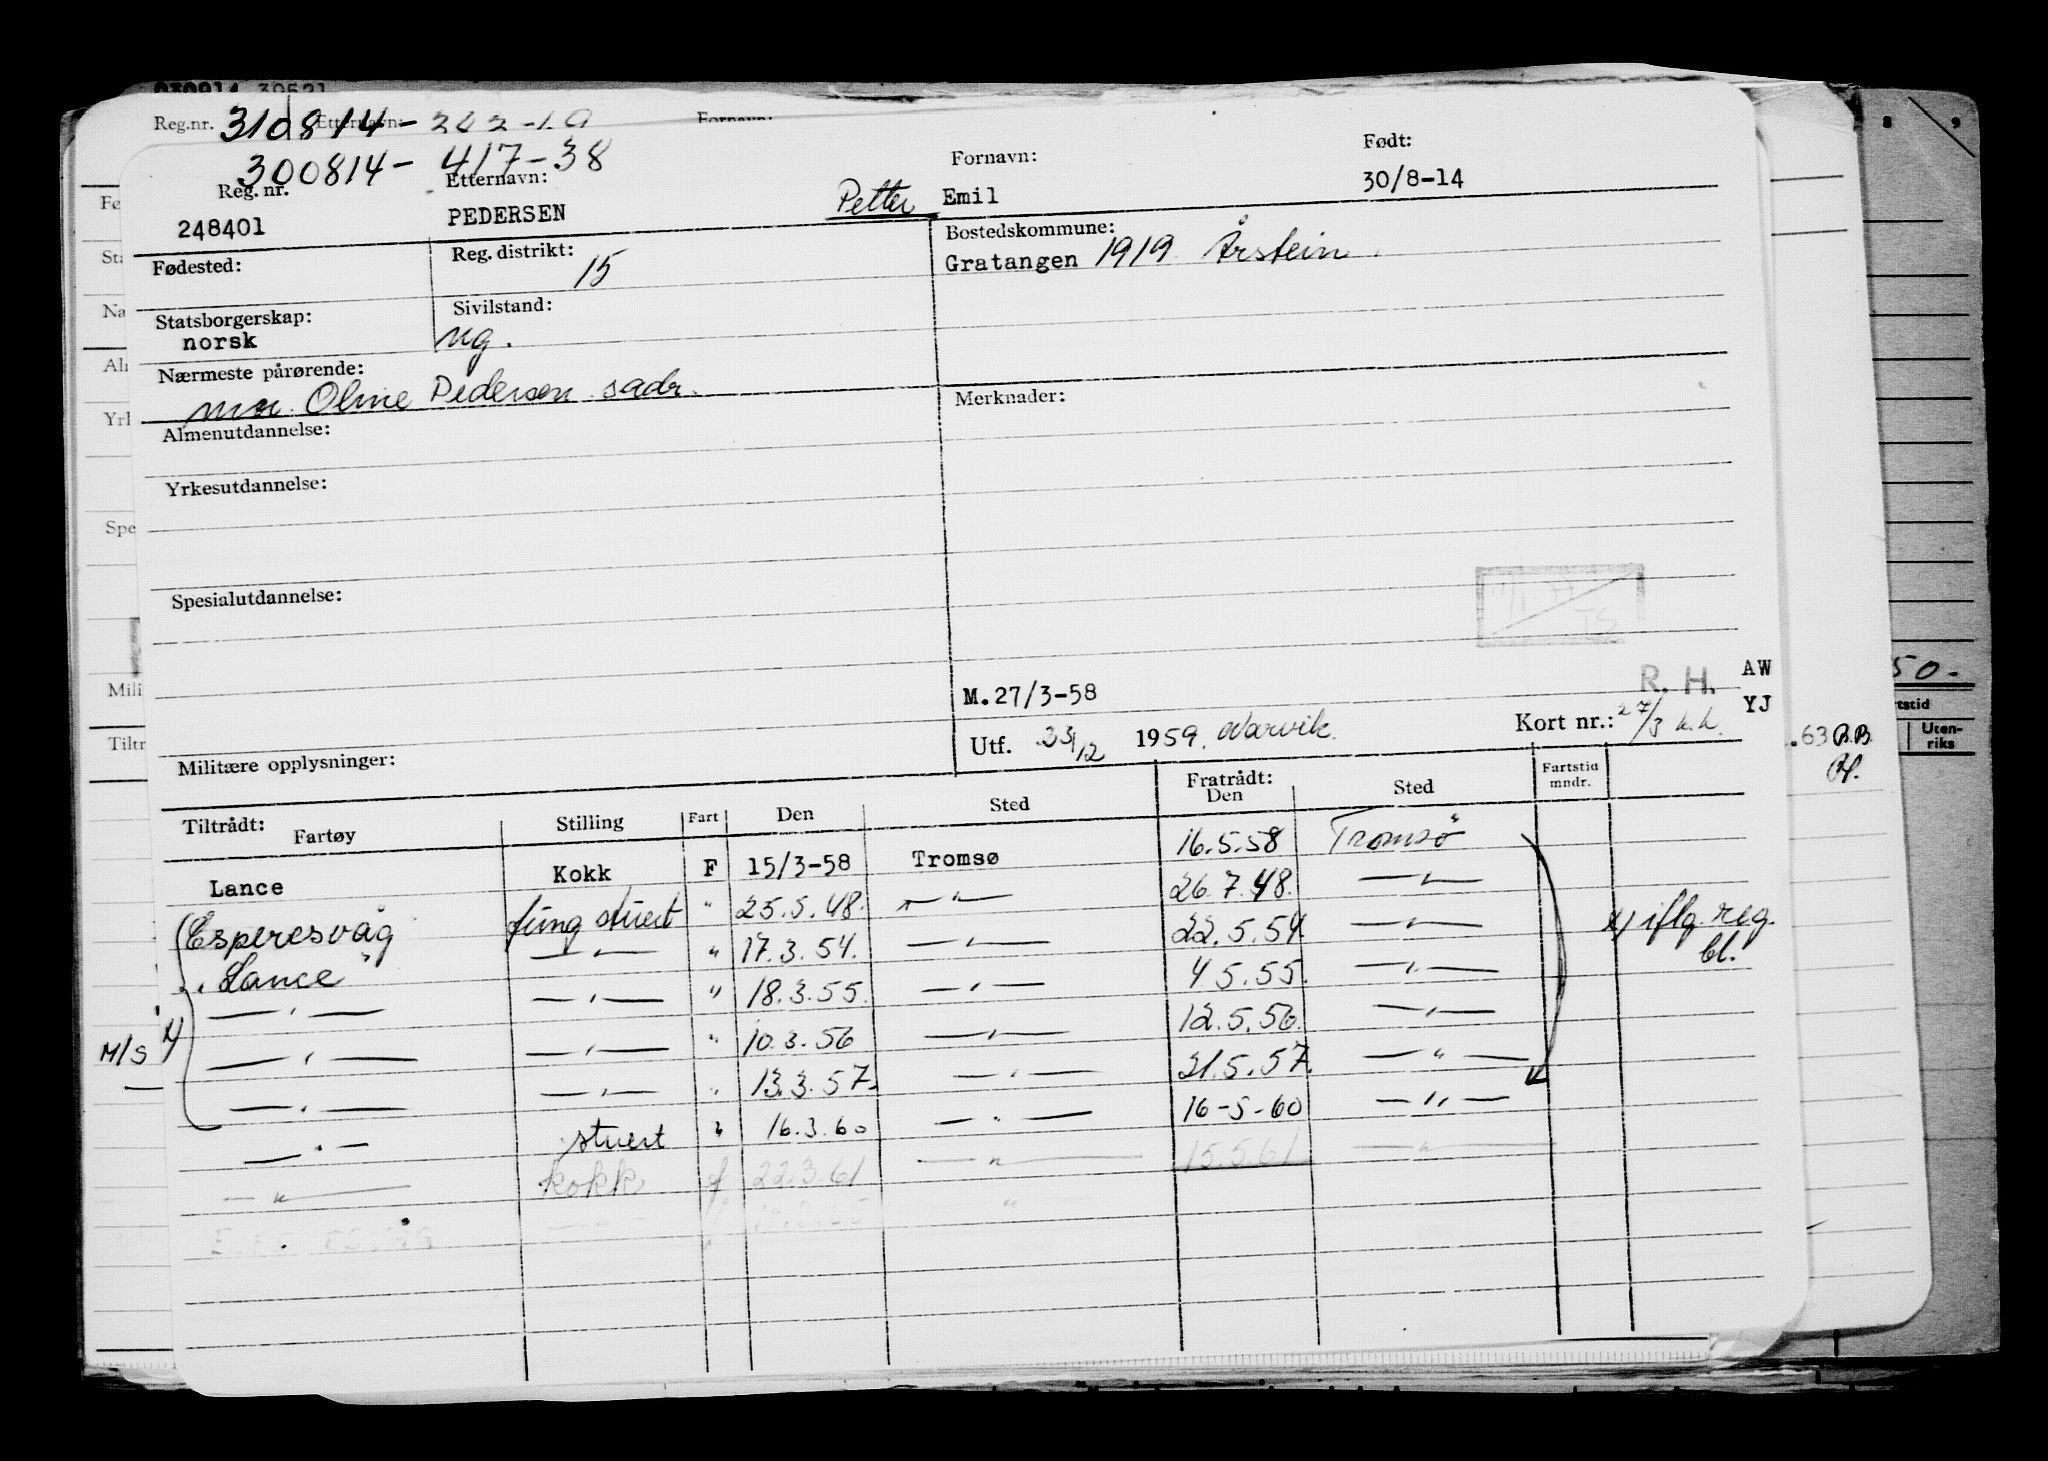 Reg.nr. 310814-
300814- 417-38
Reg. nr. Etternavn: Fornavn: Født:
248401 PEDERSEN Petter Emil 30/8-14
Fødested: Reg. distrikt: 15 Bostedskommune:
Gratangen 1919 Årstein.
Statsborgerskap: Sivilstand:
norsk ug.
Nærmeste pårørende:
mor. Oline Pedersen sadr. Merknader:
Almenutdannelse:
Yrkesutdannelse:
Spesialutdannelse:
M.27/3-58 R. H. AW
YJ
Utf. 23/12 1959. Narvik. Kort nr.: 27/3 k.h.
Militære opplysninger:
Tiltrådt: Fratrådt:
Fartøy Stilling Fart Den Sted Den Sted Fartstid mndr.
Lance Kokk F 15/3-58 Tromsø 16.5.58 Tromsö
Esperesvåg fung stuert " 25.5.48. — " — 26.7.48. — " —
"Lance" — " — " 17.3.54. — " — 22.5.54. — " —
— " — — " — " 18.3.55. — " — 4 5.55. — " —
— " — — " — " 10.3.56 — " — 12.5.56. — " —
— " — — " — " 13.3.57. — " — 21.5.57. — " —
— " — stuert " 16.3.60 — " — 16-5-60 — " —
— " — kokk f. 22.3.61 — " — 15.5.61 — " —
x) iflg. reg.
bl.
M/S
50.
Uten-
riks
.63 B.B.